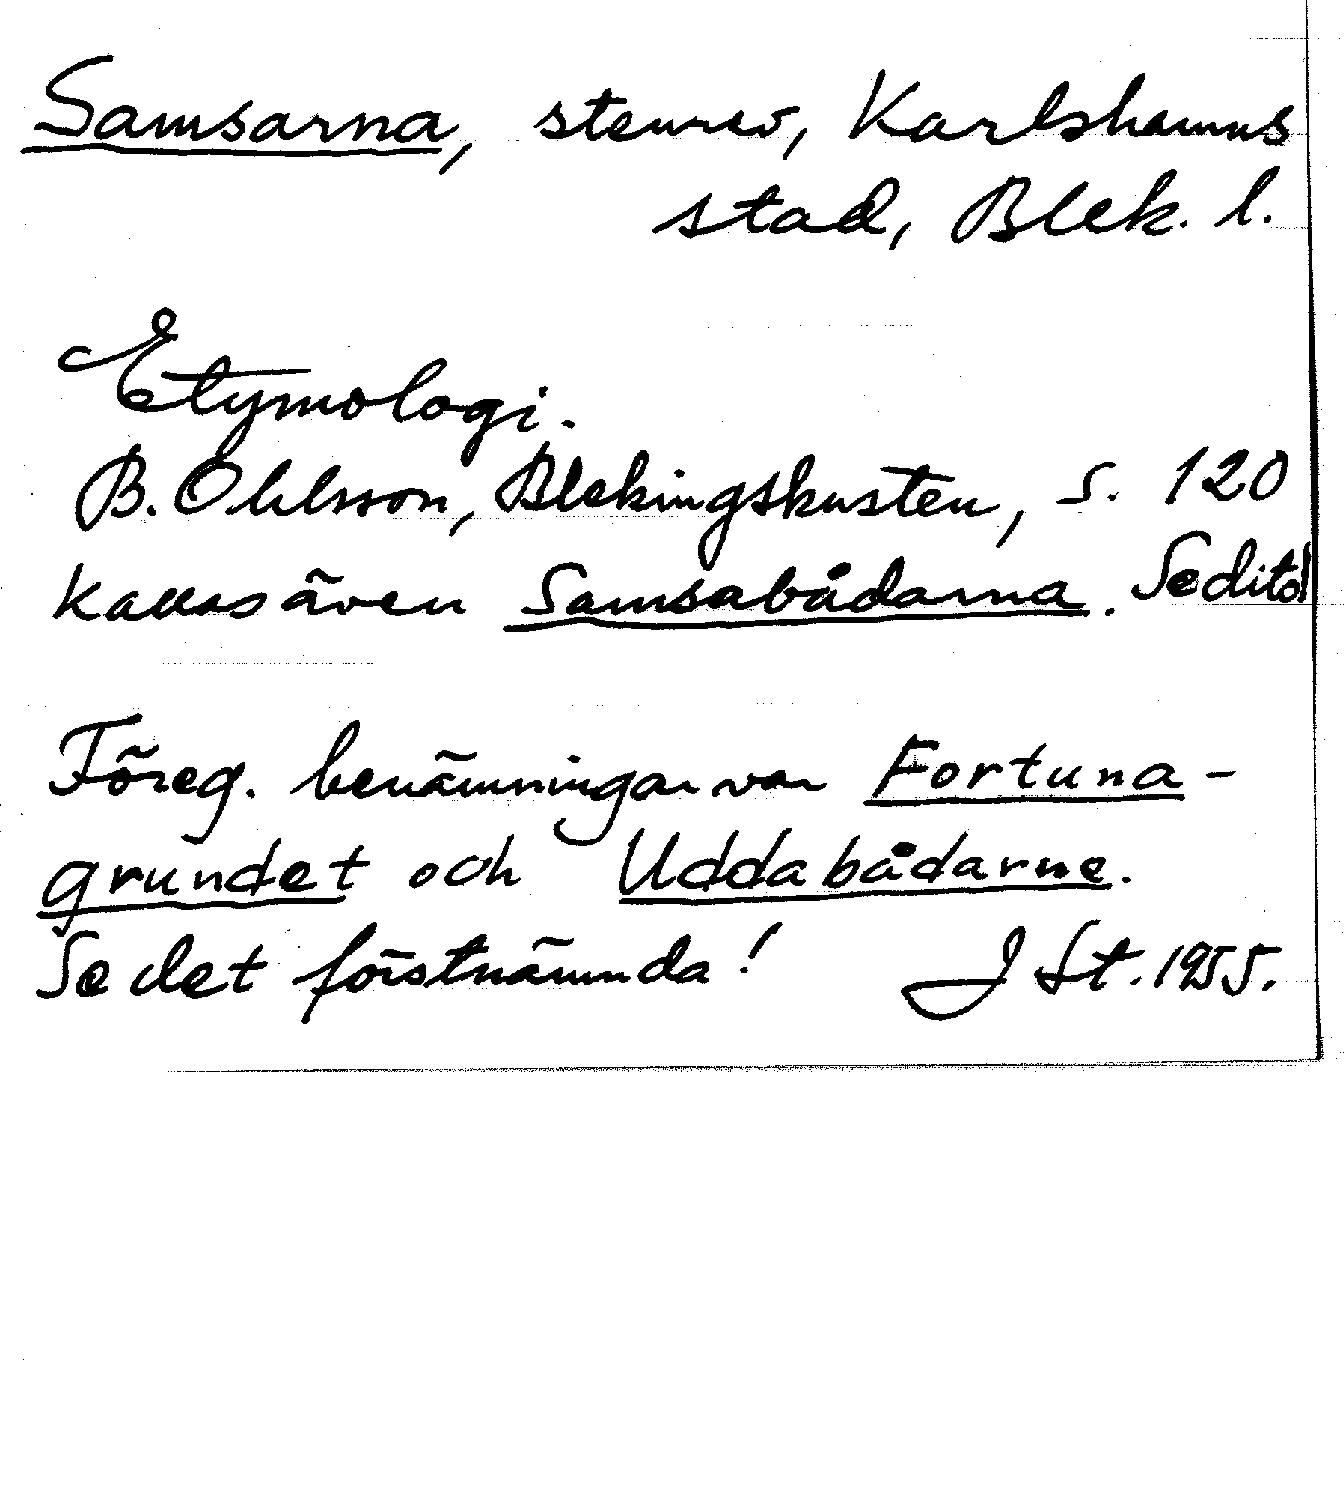 Samsarna, stenrev, Karlshamns
stad, Blek. l.
Etymologi.
B. Ohlsson, Blekingskusten, s. 120
Kallas även Samsabådarna. Se dito!
Föreg. benämningar var Fortuna-
grundet och Uddabådarne.
Se det förstnämnda! J St. 1955.